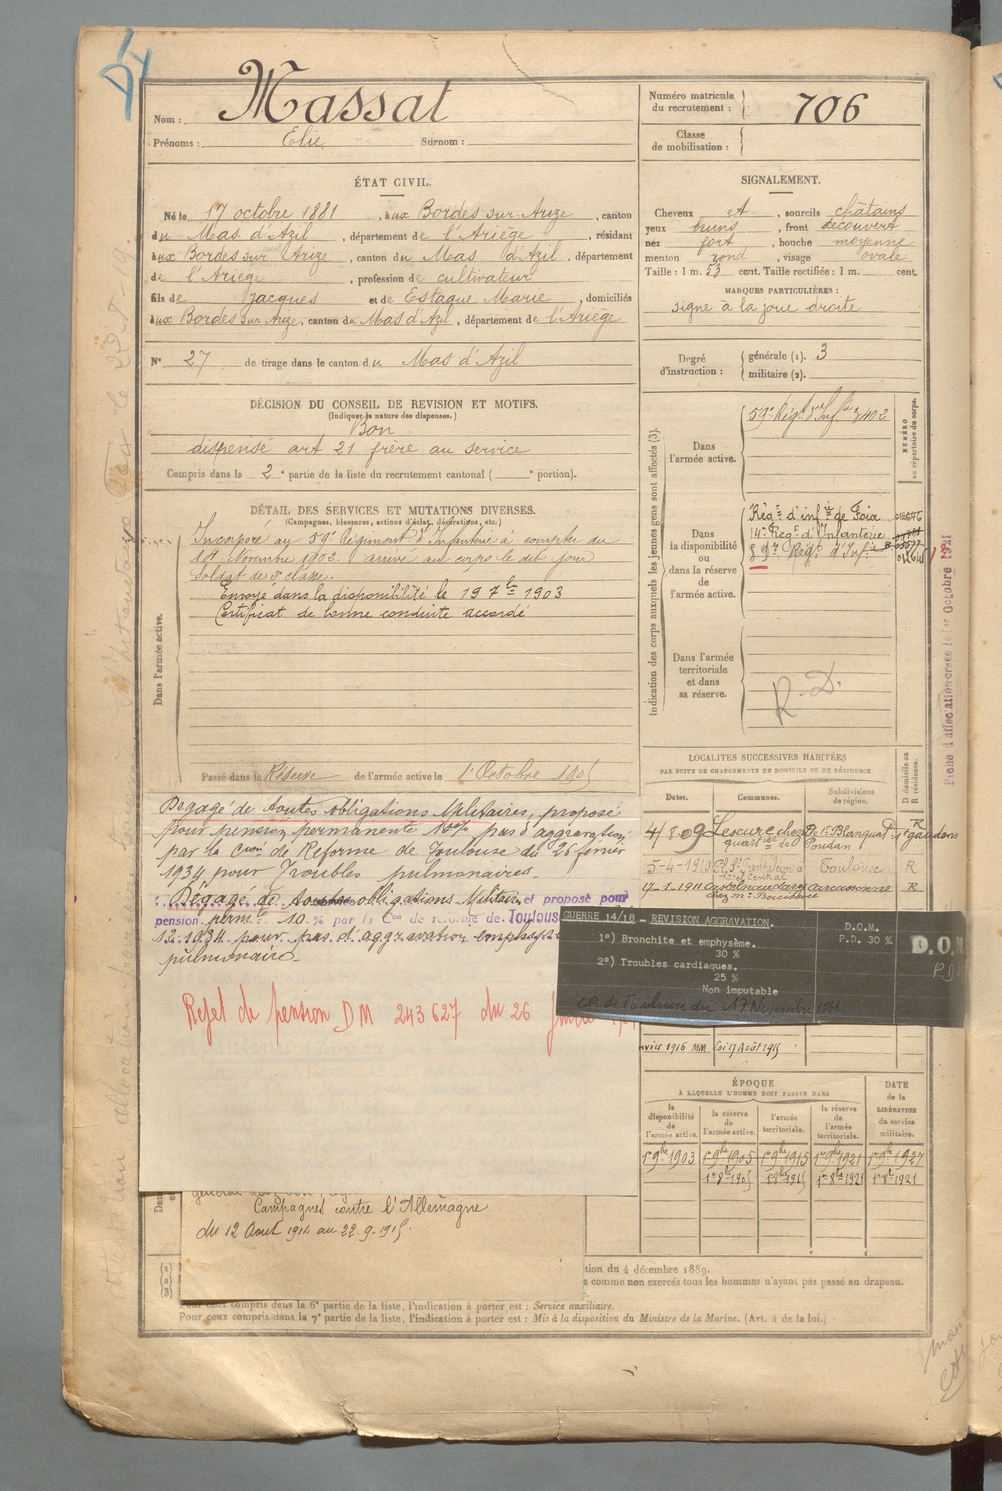 Nom : Massat
Prénoms : Elie Surnom :
Numéro matricule du recrutement : 706
Classe de mobilisation :
ÉTAT CIVIL.
Né le 17 octobre 1881, aux Bordes sur Arize, canton
du Mas d'Azil, département de l'Ariège, résidant
aux Bordes sur Arize, canton du Mas d'Azil, département
de l'Ariège, profession de cultivateur
fils de Jacques et de Estaque Marie, domiciliés
aux Bordes sur Arize, canton du Mas d'Azil, département de l'Ariège
N° 27 de tirage dans le canton du Mas d'Azil
SIGNALEMENT.
Cheveux et, sourcils châtains
yeux bruns, front découvert
nez fort, bouche moyenne
menton rond, visage ovale
Taille : 1 m. 53 cent. Taille rectifiée : 1 m. cent.
MARQUES PARTICULIÈRES :
signe à la joue droite
Degré d'instruction : générale (1). 3
militaire (2).
DÉCISION DU CONSEIL DE REVISION ET MOTIFS.
(Indiquer la nature des dispenses.)
Bon
dispensé art 21 frère au service
Compris dans la 2e partie de la liste du recrutement cantonal ( portion).
DÉTAIL DES SERVICES ET MUTATIONS DIVERSES.
(Campagnes, blessures, actions d'éclat, décorations, etc.)
Dans l'armée active.
Incorporé au 59e Régiment d'Infanterie à compter du
Novembre 1902. arrivé au corps le dit jour
soldat de 2e classe.
Envoyé dans la disponibilité le 19 7bre 1903
Certificat de bonne conduite accordé
Passé dans la Réserve de l'armée active le 1 Octobre 1905
Dégagé de toutes obligations Militaires, proposé
pour pension permanente 10% pas d'aggravation
par la Cion de Réforme de Toulouse du 26 février
1934 pour Troubles pulmonaires.
Dégagé de toutes obligations Militair. et proposé pour
pension perm te 10 % par la Con de réforme de Toulouse
12.1934 pour pas d'aggravation emphys
pulmonaire
Rejet de pension DM 243627 du 26
Campagnes contre l'Allemagne
du 12 Aout 1914 au 22.9.1915.
Indication des corps auxquels les jeunes gens sont affectés (3).
Dans l'armée active.
59e Régt d'Inf
NUMÉRO au répertoire du corps.
Dans la disponibilité ou dans la réserve de l'armée active.
Régt d'infie de Foix
14e Régt d'Infanterie
Régt d'Infie
Dans l'armée territoriale et dans sa réserve.
R-D.
LOCALITÉS SUCCESSIVES HABITÉES
PAR SUITE DE CHANGEMENTS DE DOMICILE OU DE RÉSIDENCE
Dates. Communes. Subdivisions de région. D domicile ou R résidence.
Lescure chez
quartier de
Toulouse R
17-1-1911 Castelnaudary Carcassonne R
GUERRE 14/18 - REVISION AGGRAVATION. D.O.M.
1°) Bronchite et emphysème. P.D. 30 %
30 %
2°) Troubles cardiaques.
25 %
Non imputable
17 Novembre
D.O.M
1916 MM Loi 17 Août 1915
ÉPOQUE
À LAQUELLE L'HOMME DOIT PASSER DANS
DATE de la LIBÉRATION du service militaire.
la disponibilité de l'armée active. la réserve de l'armée active. l'armée territoriale. la réserve de l'armée territoriale.
1er 9bre 1903 1er 9bre 1905 1er 9bre 1915 1er 9bre 1921 1er 9bre 1927
1er 8bre 1905 1er 8bre 1915 1er 8bre 1921 1er 8bre 1921
tion du 4 décembre 1889.
a comme non exercés tous les hommes n'ayant pas passé au drapeau.
Pour ceux compris dans la 6e partie de la liste, l'indication à porter est : Service auxiliaire.
Pour ceux compris dans la 7e partie de la liste, l'indication à porter est : Mis à la disposition du Ministre de la Marine. (Art. 4 de la loi.)